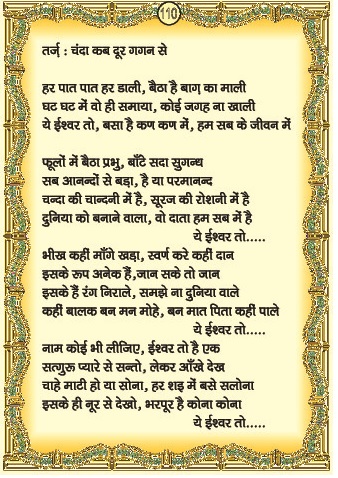 110
तर्ज़ : चंदा कब दूर गगन से
हर पात पात हर डाली, बैठा है बाग़ का माली
घट घट में वो ही समाया, कोई जगह ना खाली
ये ईश्वर तो, बसा है कण कण में, हम सब के जीवन में
फूलों में बैठा प्रभु, बाँटे सदा सुगन्ध
सब आनन्दों से बड़ा, है या परमानन्द
चन्दा की चान्दनी में है, सूरज की रोशनी में है
दुनिया को बनाने वाला, वो दाता हम सब में है
ये ईश्वर तो.....
भीख कहीं माँगे खड़ा, स्वर्ण करे कहीं दान
इसके रूप अनेक हैं,जान सके तो जान
इसके हैं रंग निराले, समझे ना दुनिया वाले
कहीं बालक बन मन मोहे, बन मात पिता कहीं पाले
ये ईश्वर तो.....
नाम कोई भी लीजिए, ईश्वर तो है एक
सत्गुरू प्यारे से सन्तो, लेकर आँखे देख
चाहे माटी हो या सोना, हर शइ में बसे सलोना
इसके ही नूर से देखो, भरपूर है कोना कोना
ये ईश्वर तो.....